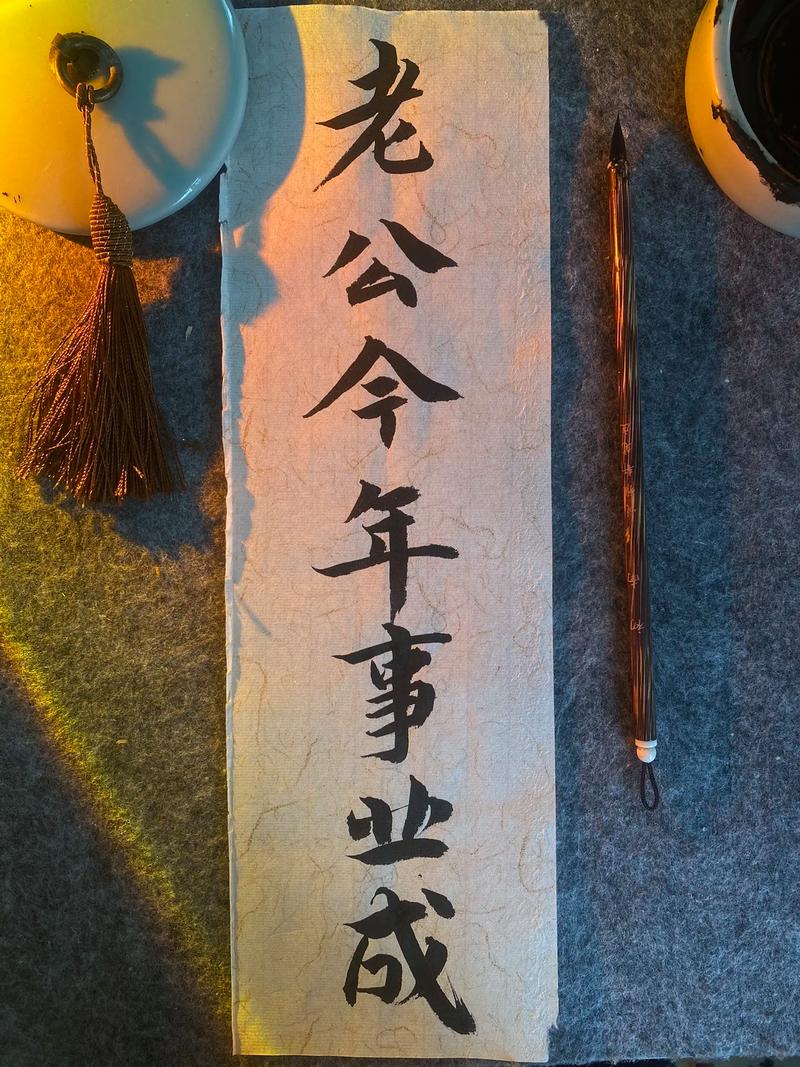 老公今年事业成